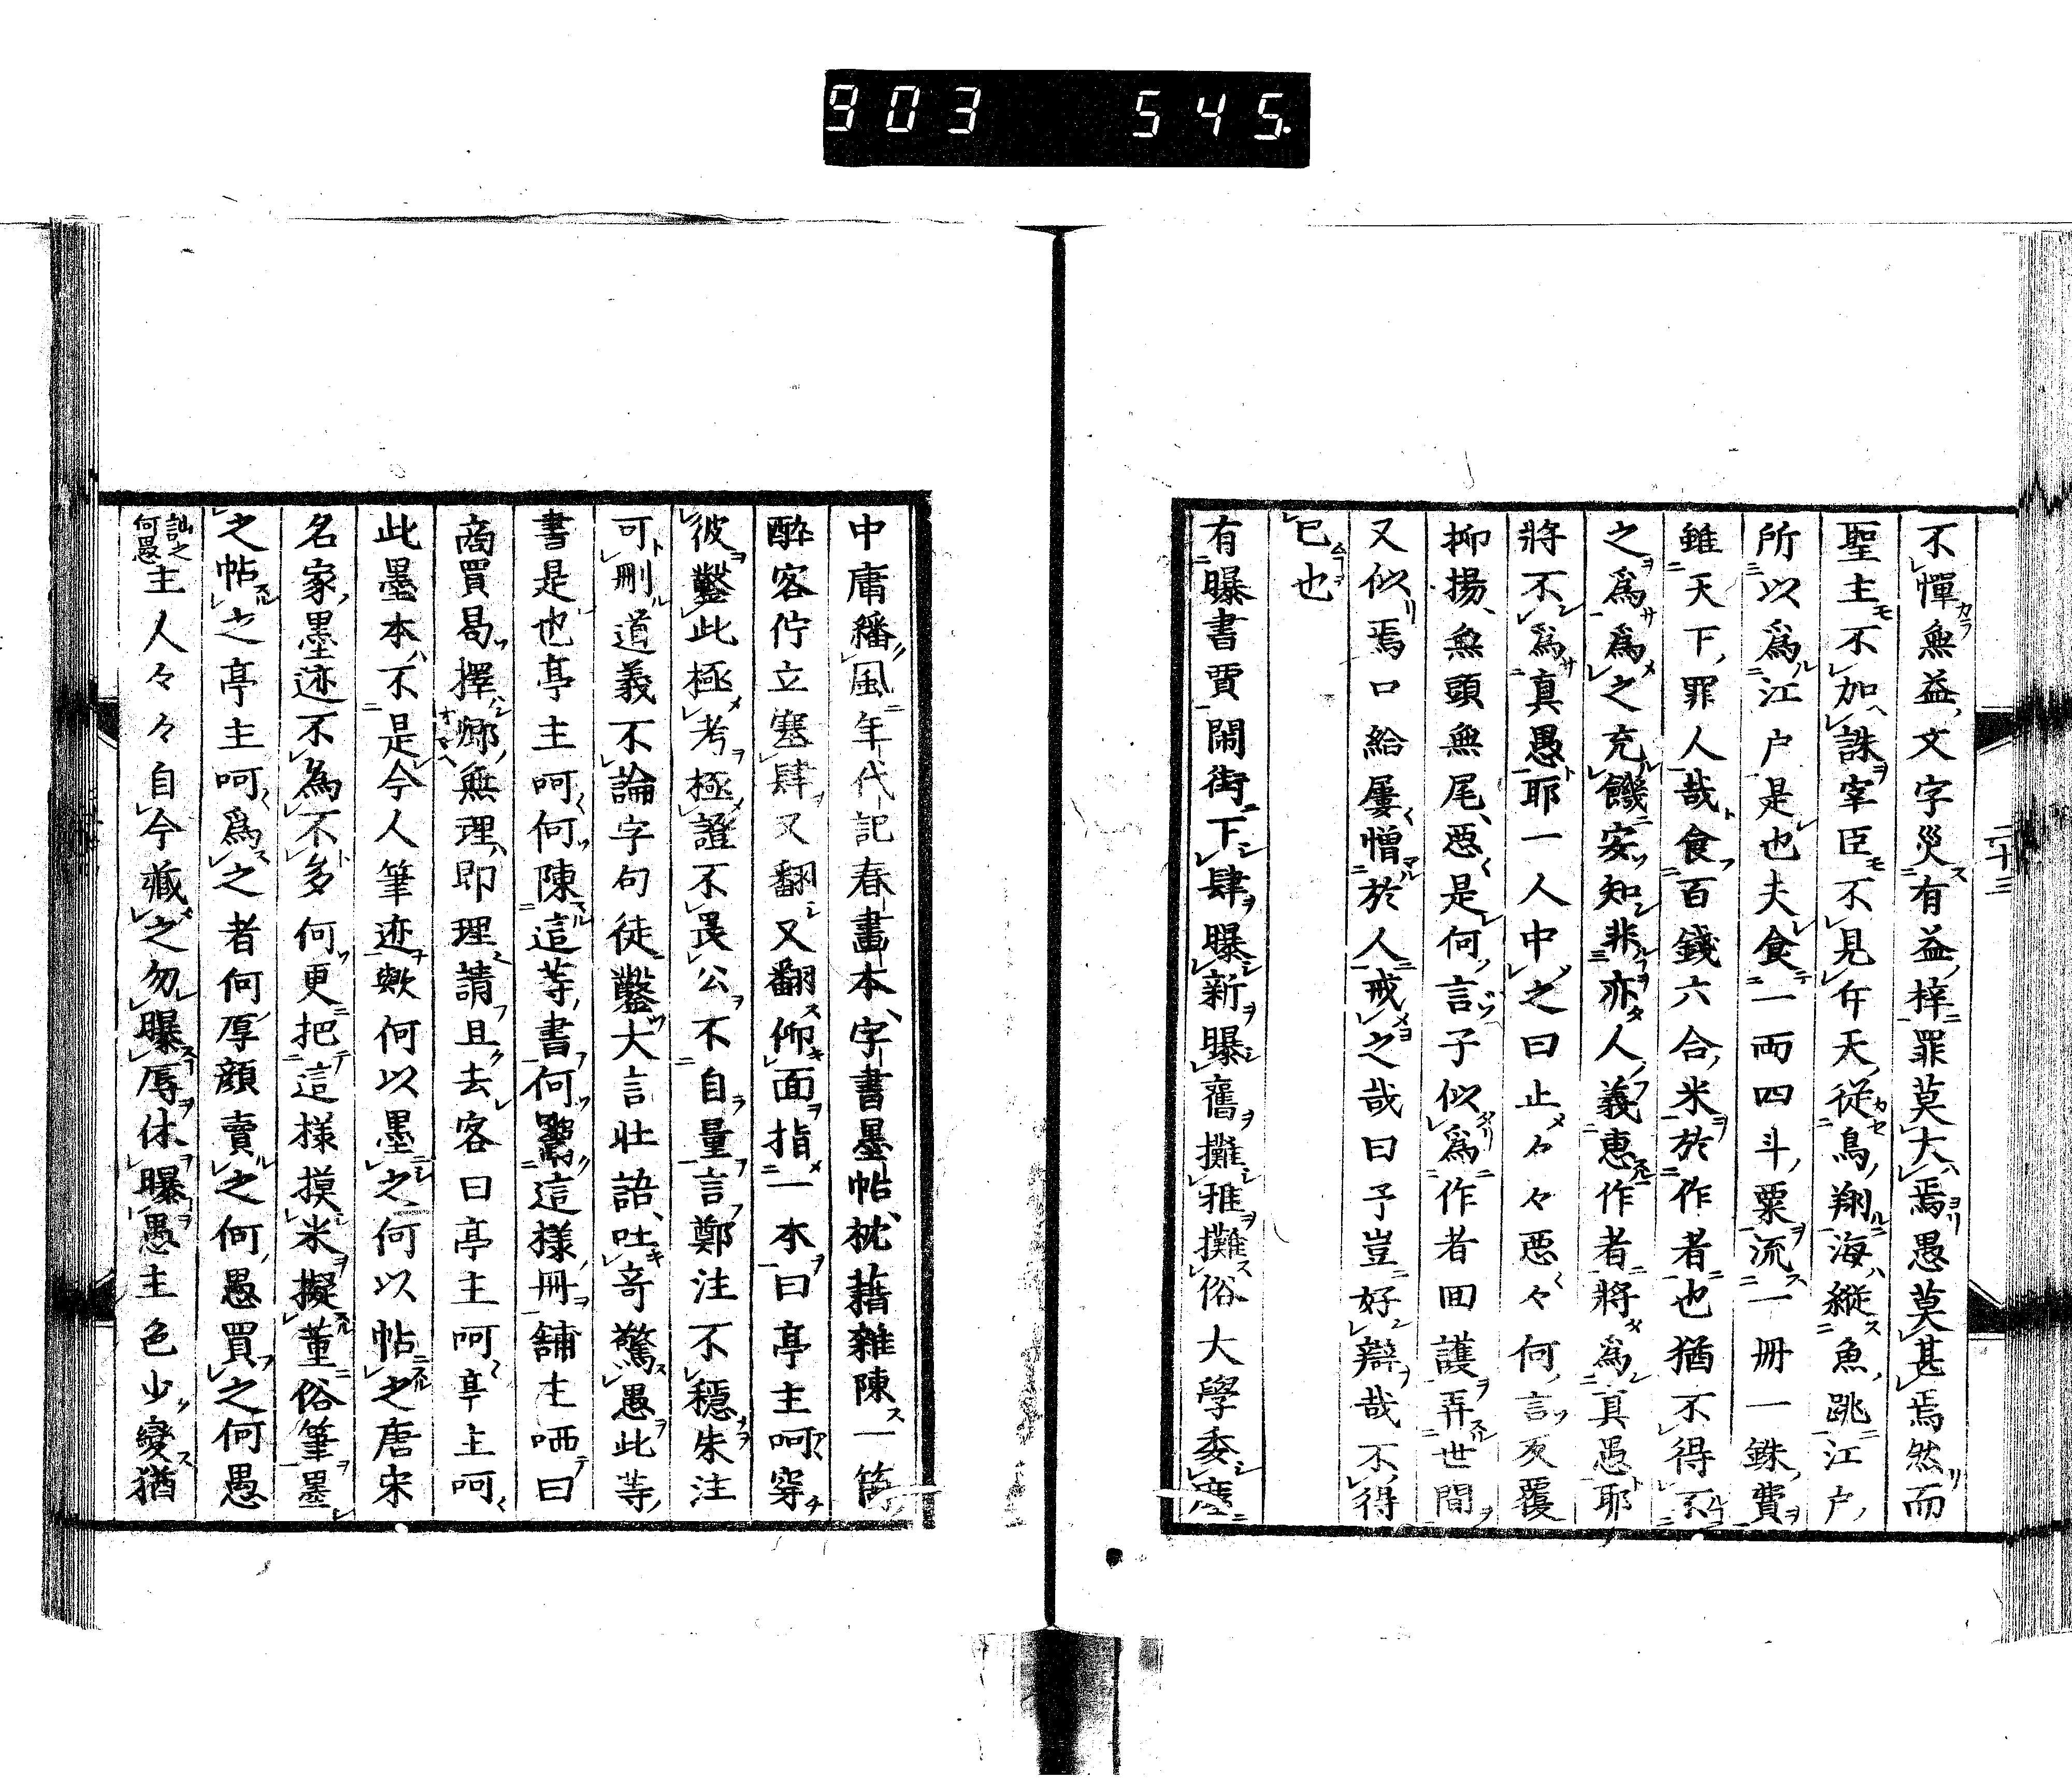 903 545.
二十三
不憚無益文字災有益梓罪莫大焉愚莫甚焉然而
聖主不加誅宰臣不見斥天從鳥翔海縱魚跳江戶
所以爲江戶是也夫食一兩四斗粟流一冊一銖費
雖天下罪人哉食百錢六合米於作者也猶不得不
之爲爲之充饑安知非亦人義惠作者將爲真愚耶
將不爲真愚耶一人中之曰止々々惡々何言反覆
抑揚無頭無尾惡是何言子似爲作者回護弄世間
又似焉口給屢憎於人戒之哉曰予豈好辯哉不得
已也
有曝書賈鬧街下肆曝新曝舊攤雅攤俗大學委塵
中庸繙風年代記春畫本字書墨帖枕藉雜陳一
醉客佇立塞肆又翻又翻仰面指一本曰亭主呵穿
彼鑿此極考極證不畏公不自量言鄭注不穩朱注
可刪道義不論字句徒鑿大言壯語吐奇驚愚此等
書是也亭主呵何陳這等書何鬻這樣冊舖主哂曰
商買曷擇鄉無理即理請且去客曰亭主呵亭主呵
此墨本不是今人筆迹歟何以墨之何以帖之唐宋
名家墨迹不為不多何更把這樣摸米擬董俗筆墨
之帖之亭主呵爲之者何厚顔賣之何愚買之何愚
訕之何愚主人々々自今藏之勿曝辱休曝愚主色少變猶